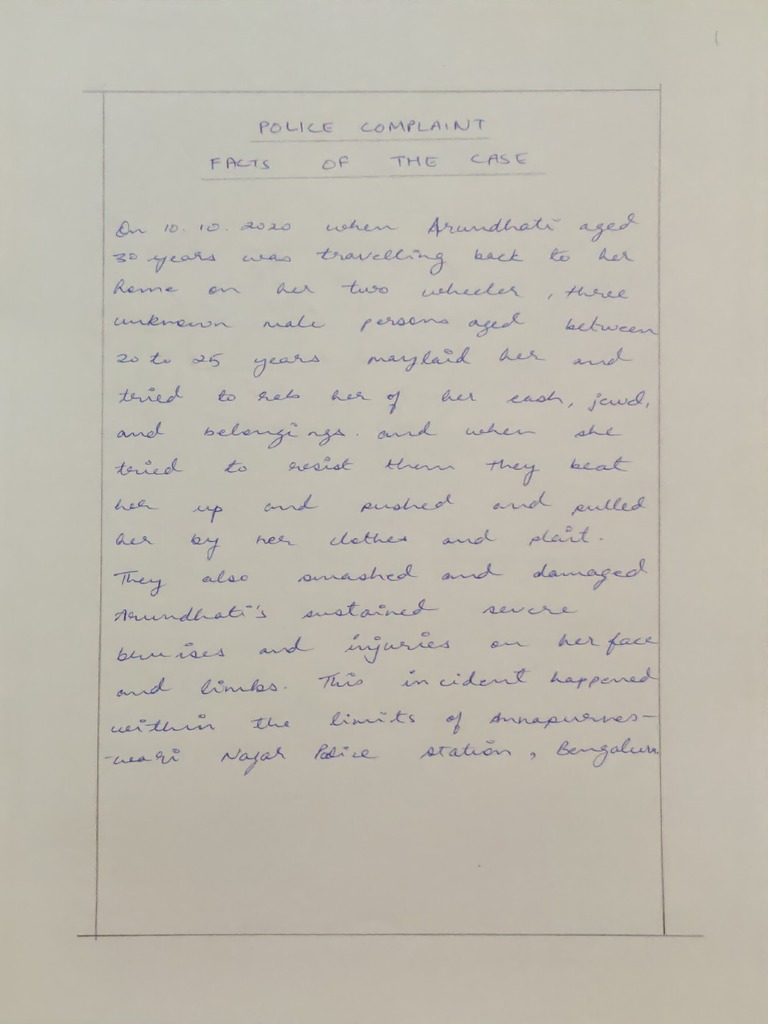 POLICE COMPLAINT
FACTS OF THE CASE
On 10.10.2020 when Arundhati aged
30 years was travelling back to her
home on her two wheeler, three
unknown male persons aged between
20 to 25 years maylaid her and
tried to rob her of her cash, jewel,
and belongings. and when she
tried to resist them they beat
her up and pushed and pulled
her by her clothes and plait.
They also smashed and damaged
Arundhati's sustained severe
bruises and injuries on her face
and limbs. This incident happened
within the limits of Annapurnes-
-wari Nagar Police station, Bengaluru.